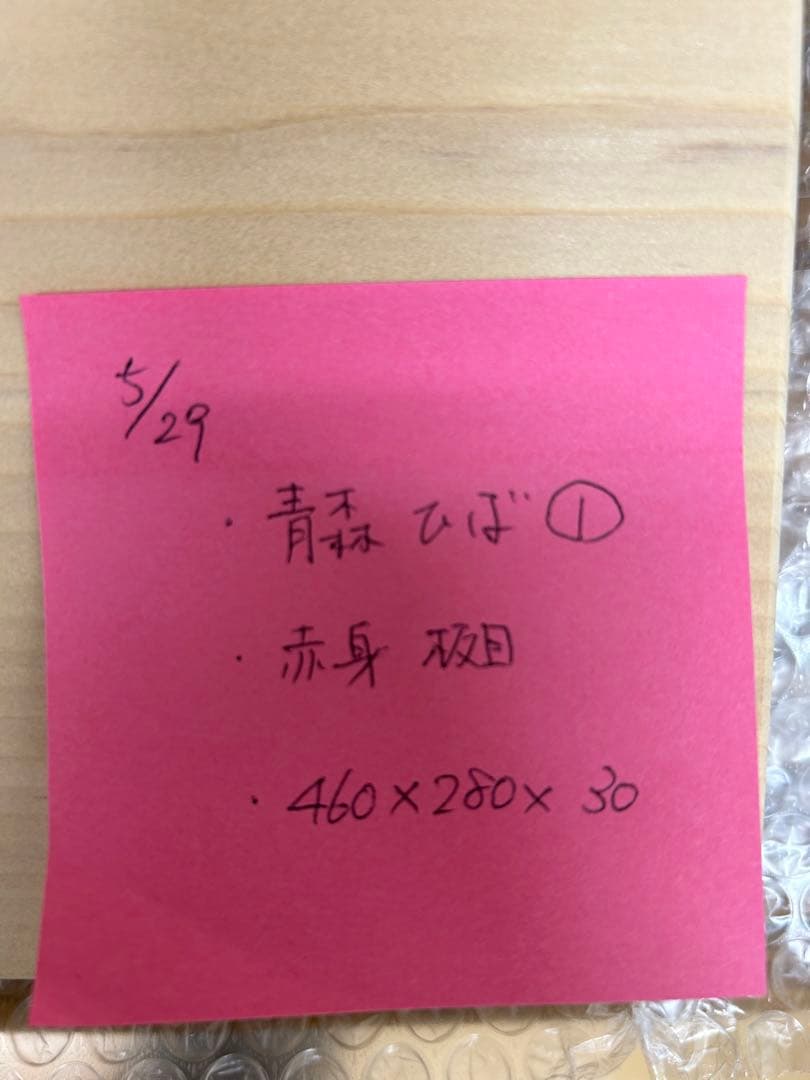 5/29
・青森ひば①
・赤身 板目
・460×280×30